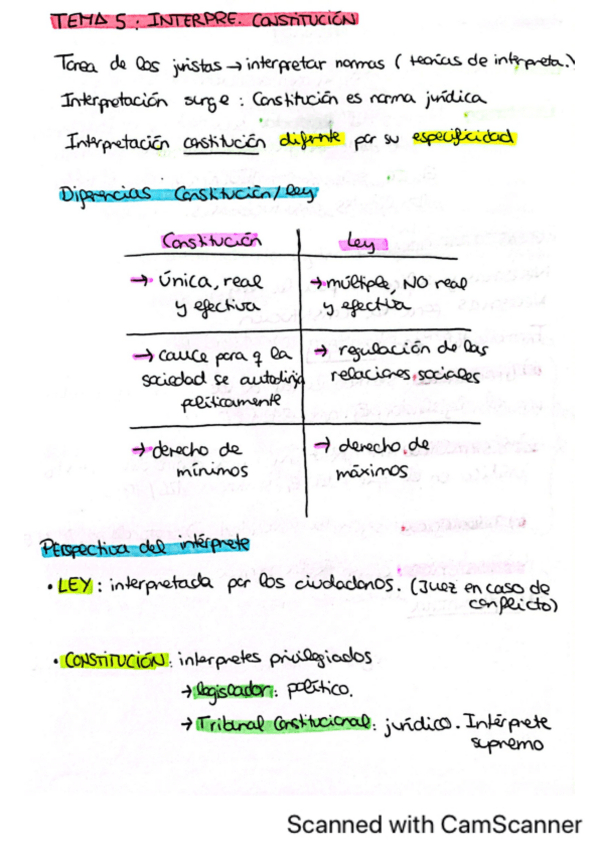 TEMA 5: INTERPRE. CONSTITUCIÓN
Tarea de los juristas → interpretar normas (teorías de interpreta.)
Interpretación surge: Constitución es norma jurídica
Interpretación constitución difernte por su especificidad
Diferencias Constitución/ley
Constitución
Ley
→ única, real
y efectiva
→ múltiple, NO real
y efectiva
→ cauce para q la
sociedad se autodirija
políticamente
→ regulación de las
relaciones sociales
→ derecho de
mínimos
→ derecho de
máximos
Perspectiva del intérprete
• LEY: interpretada por los ciudadanos. (Juez en caso de
conflicto)
• CONSTITUCIÓN: interpretes privilegiados
→ legislador: político.
→ Tribunal Constitucional: jurídico. Intérprete
supremo
Scanned with CamScanner